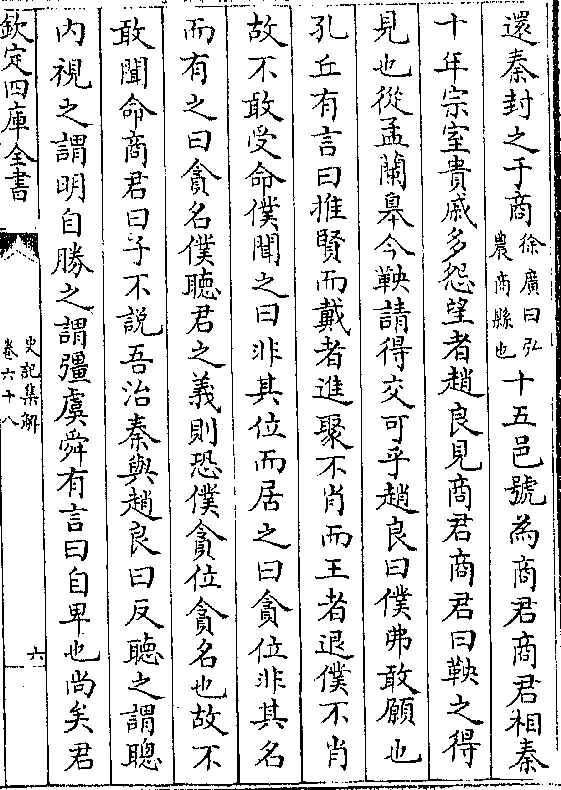 還秦封之于商徐廣曰弘農商縣也十五邑號為商君商君相秦
十年宗室貴戚多怨望者趙良見商君商君曰鞅之得
見也從孟蘭臯今鞅請得交可乎趙良曰僕弗敢願也
孔丘有言曰推賢而戴者進聚不肖而王者退僕不肖
故不敢受命僕聞之曰非其位而居之曰貪位非其名
而有之曰貪名僕聽君之義則恐僕貪位貪名也故不
敢聞命商君曰子不說吾治秦與趙良曰反聽之謂聰
內視之謂明自勝之謂彊虞舜有言曰自卑也尚矣君
欽定四庫全書
史記集解
卷六十八
六